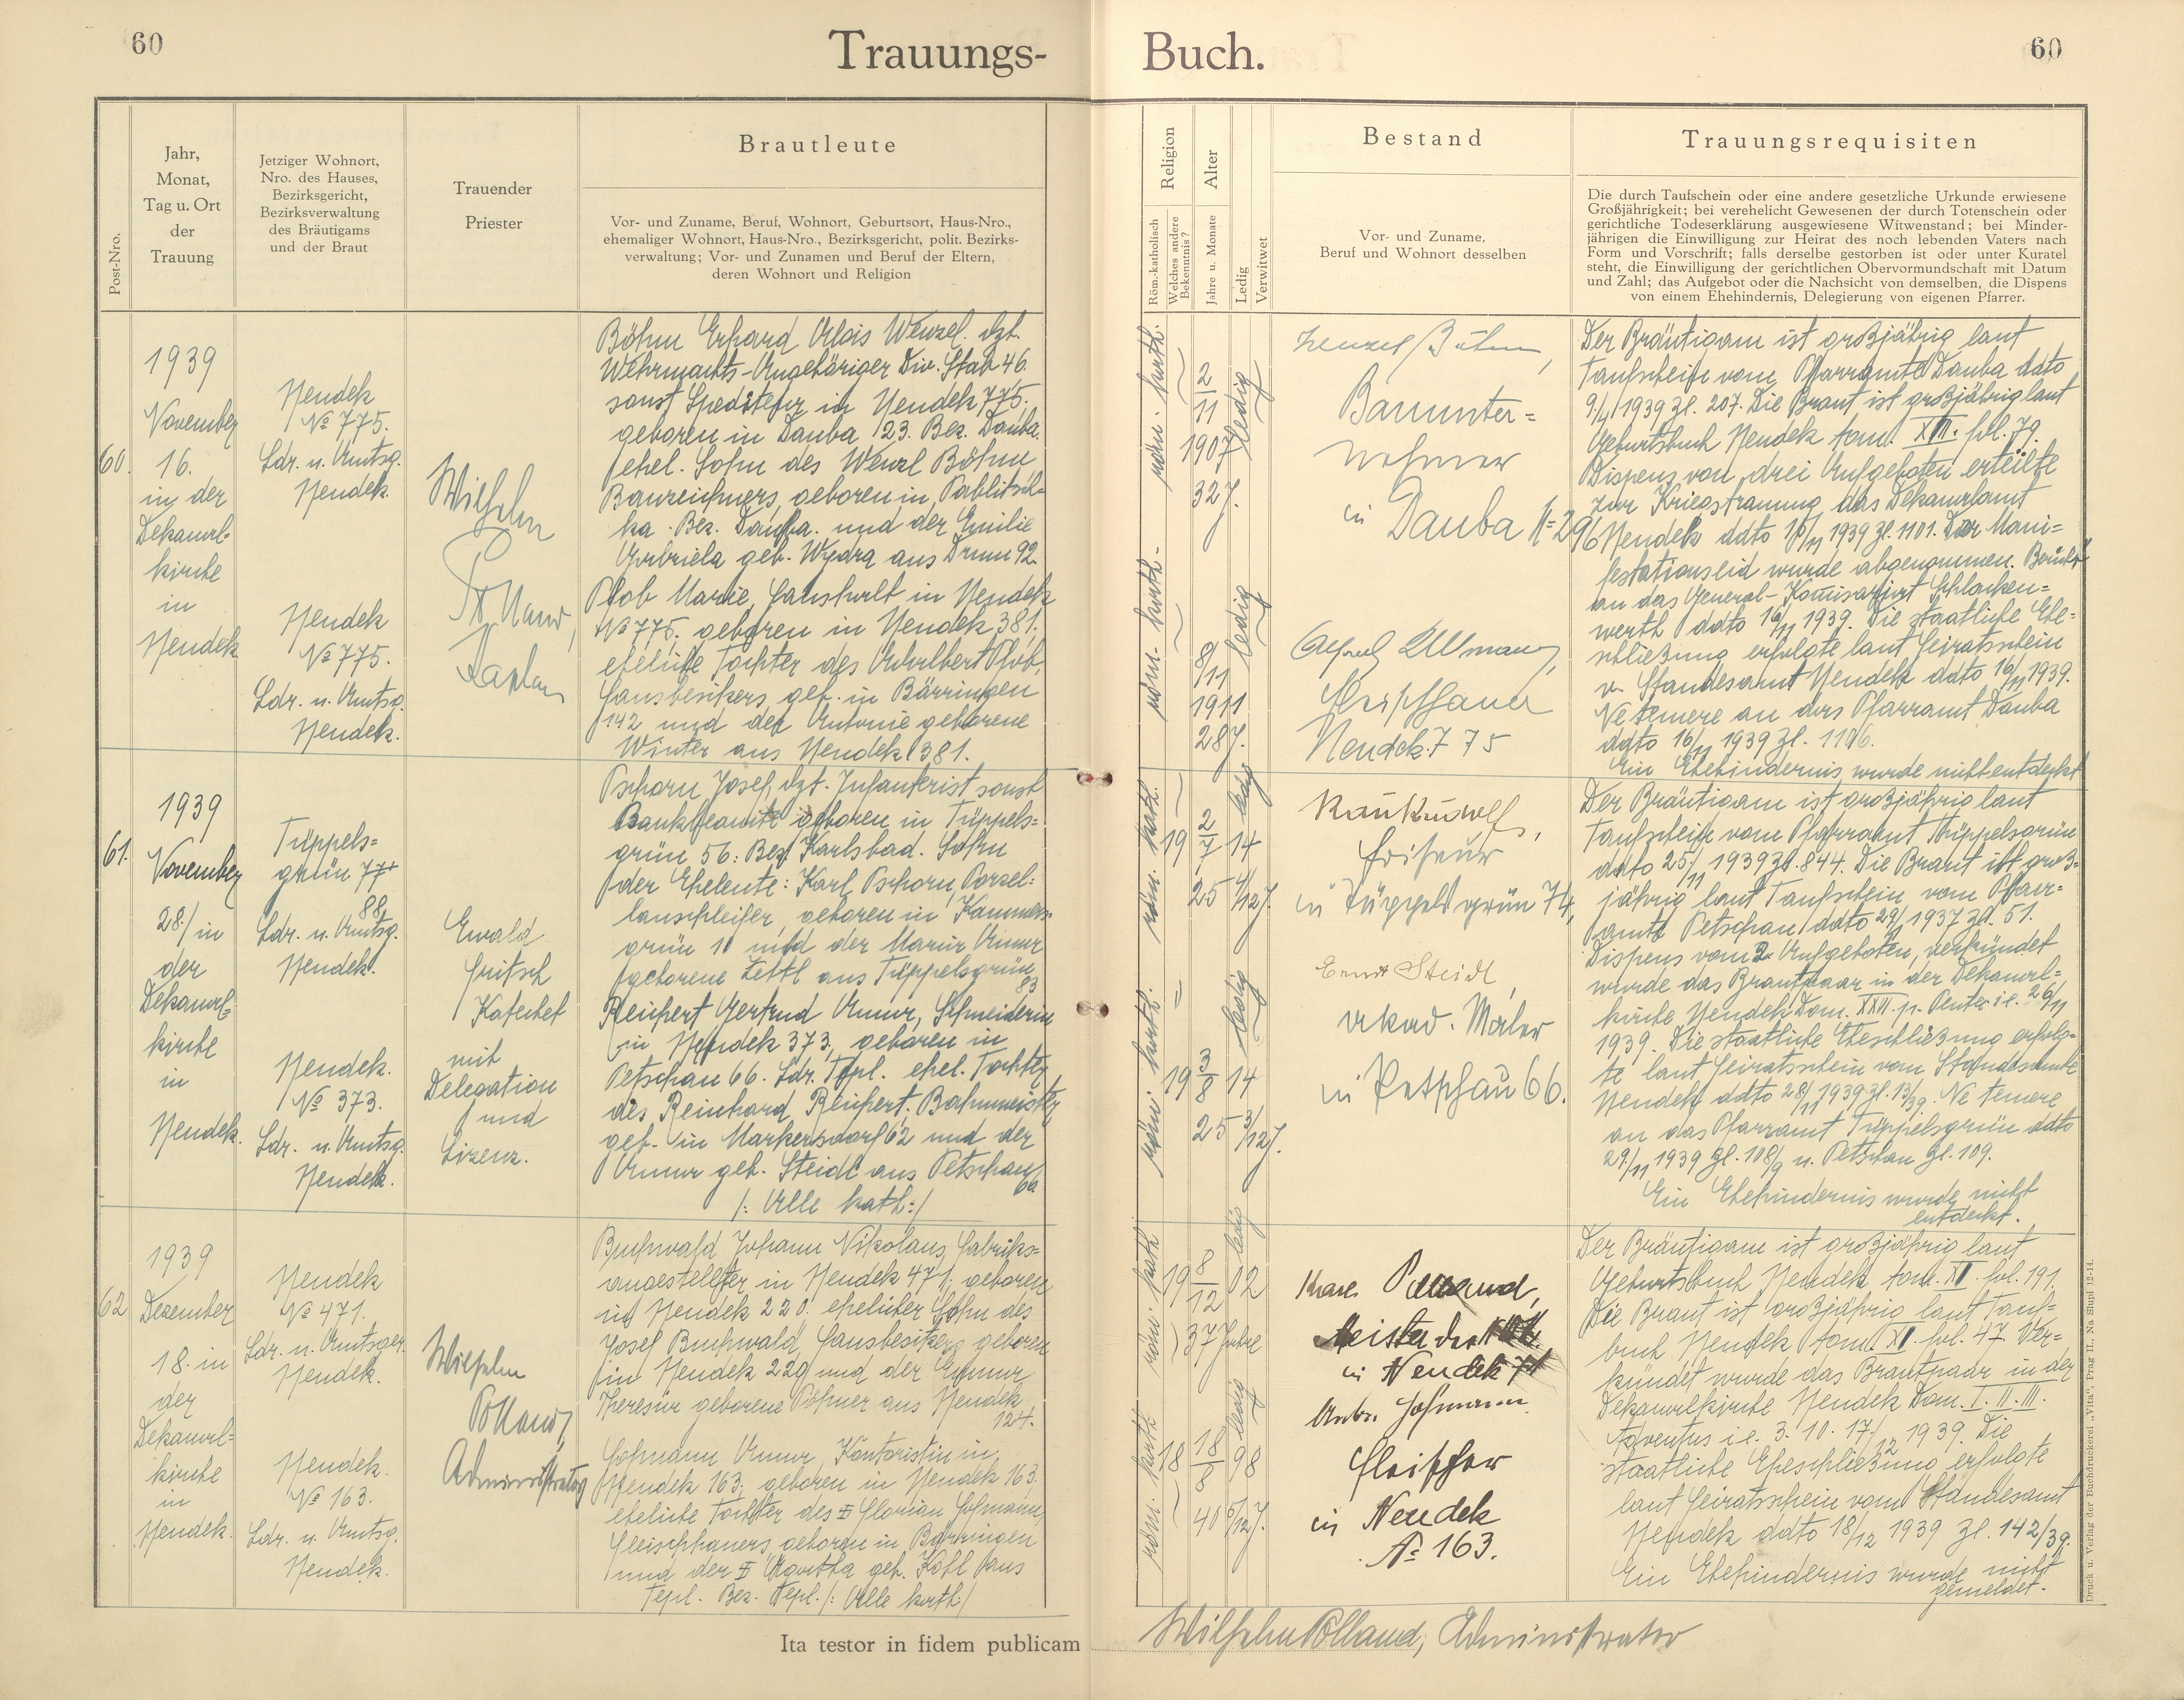 60
60
Trauungs-
Buch.
Post-Nro.
Jahr,
Monat,
Tag u. Ort
der
Trauung
Jetziger Wohnort,
Nro. des Hauses,
Bezirksgericht,
Bezirksverwaltung
des Bräutigams
und der Braut
Trauender
Priester
Brautleute
Vor- und Zuname, Beruf, Wohnort, Geburtsort, Haus-Nro.,
ehemaliger Wohnort, Haus-Nro., Bezirksgericht, polit. Bezirks-
verwaltung; Vor- und Zunamen und Beruf der Eltern,
deren Wohnort und Religion
Religion
Röm.-katholisch
Welches andere
Bekenntnis?
Alter
Jahre u. Monate
Ledig
Verwitwet
Bestand
Vor- und Zuname,
Beruf und Wohnort desselben
Trauungsrequisiten
Die durch Taufschein oder eine andere gesetzliche Urkunde erwiesene
Großjährigkeit; bei verehelicht Gewesenen der durch Totenschein oder
gerichtliche Todeserklärung ausgewiesene Witwenstand; bei Minder-
jährigen die Einwilligung zur Heirat des noch lebenden Vaters nach
Form und Vorschrift; falls derselbe gestorben ist oder unter Kuratel
steht, die Einwilligung der gerichtlichen Obervormundschaft mit Datum
und Zahl; das Aufgebot oder die Nachsicht von demselben, die Dispens
von einem Ehehindernis, Delegierung von eigenen Pfarrer.
60.
1939
November
16.
in der
Dekanal-
kirche
in
Neudek
Neudek
№ 775.
Ldr. u. Amtsg.
Neudek.
Neudek
№ 775.
Ldr. u. Amtsg.
Neudek.
Wilhelm
Pölland,
Kaplan
Böhm Erhard Alois Wenzel. dzt.
Wehrmachts-Angehöriger Div. Stab 46.
sonst Spediteur in Neudek 775.
geboren in Dauba 123. Bez. Dauba.
ehel. Sohn des Wenzl Böhm
Bauzeichners, geboren in Pablitsch-
ka. Bez. Dauba. und der Emilie
Gabriela geb. Wydra aus Drum 92.
Plob Marie, Haushalt in Neudek
№ 775. geboren in Neudek 381.
eheliche Tochter des Adalbert Plob,
Hausbesitzers, geb. in Bärringen
142 und der Antonie geborene
Winter aus Neudek 381.
röm. kath.
2
11
1907
32 J.
ledig
röm. kath.
8/11
1911
28 J.
ledig
Wenzel Böhm,
Bauunter-
nehmer
in Dauba N=296
Alfred Ullmann,
Fleischhauer
Neudek 775
Der Bräutigam ist großjährig laut
Taufscheine vom Pfarramte Dauba ddto
9./11 1939 Zl. 207. Die Braut ist großjährig laut
Geburtsbuch Neudek tom. XIII. fol. 79.
Dispens von drei Aufgeboten erteilte
zur Kriegstrauung das Dekanalamt
Neudek ddto 16/11 1939 Zl. 1101. Der Mani-
festationseid wurde abgenommen. Bericht
an das General-Komisariat Schlacken-
werth ddto 16/11 1939. Die staatliche Ehe-
schließung erfolgte laut Heiratsschein
v. Standesamt Neudek ddto 16/11 1939.
Ne temere an das Pfarramt Dauba
ddto 16/11 1939 Zl. 1106.
Ein Ehehindernis wurde nicht entdeckt
61.
1939
November
28/ in
der
Dekanal-
kirche
in
Neudek.
Tüppels-
grün 77+
88
Ldr. u. Amtsg.
Neudek.
Neudek.
№ 373.
Ldr. u. Amtsg.
Neudek.
Ewald
Fritsch
Katechet
mit
Delegation
und
Lizenz.
Pschorn Josef, dzt. Infanterist sonst
Bankbeamte geboren in Tüppels-
grün 56. Bez. Karlsbad. Sohn
der Eheleute: Karl Pschorn, Porzel-
lanschleifer, geboren in Kammers-
grün 11 und der Maria Anna
geborene Zettl aus Tüppelsgrün
83
Reichert Gertrud Anna, Schneiderin
in Neudek 373, geboren in
Petschau 66. Ldr. Tepl. ehel. Tochter
des Reinhard Reichert. Bahnmeister
geb. in Markersdorf 62 und der
Anna geb. Steidl aus Petschau
66.
/: Alle kath:/
röm. kath.
19 2/7 14
25 4/12 J.
ledig
röm. kath.
19 3/8 14
25 3/12 J.
ledig
Friseur
in Tüppelsgrün 74,
Ernst Steidl,
akad. Maler
in Petschau 66.
Der Bräutigam ist großjährig laut
Taufschein vom Pfarramt Tüppelsgrün
ddto 25/11 1939 Zl. 844. Die Braut ist groß-
jährig laut Taufschein vom Pfarr-
amte Petschau ddto 29/1 1937 Zl. 51.
Dispens vom 2. Aufgeboten, verkündet
wurde das Brautpaar in der Dekanal-
kirche Neudek Dom. XXVI. p. Pent. i.e. 26/11
1939. Die staatliche Eheschließung erfolg-
te laut Heiratsschein vom Standesamte
Neudek ddto 28/11 1939 Zl. 13/39. Ne temere
an das Pfarramt Tüppelsgrün ddto
29/11 1939 Zl. 108/9 u. Petschau Zl. 109.
Ein Ehehindernis wurde nicht
entdeckt.
62
1939
Dezember
18. in
der
Dekanal-
kirche
in
Neudek.
Neudek
№ 471.
Ldr. u. Amtsger.
Neudek.
Neudek.
№ 163.
Ldr. u. Amtsg.
Neudek.
Wilhelm
Pölland,
Administrator
Buchwald Johann Nikolaus, Fabriks-
angestellter in Neudek 471, geboren
in Neudek 220. ehelicher Sohn des
Josef Buchwald, Hausbesitzers, geboren
in Neudek 229 und der Anna
Theresia geborene Pöhner aus Neudek
124.
Hofmann Anna, Kontoristin in
Neudek 163, geboren in Neudek 163.
eheliche Tochter des ‡ Florian Hofmann,
Fleischhauers, geboren in Bärringen
und der ‡ Agatha geb. Köhl aus
Tepl. Bez. Tepl. /: Alle kath:/
röm. kath
19 8/12 02
37 Jahre
ledig
röm. kath
18 18/8 98
40 5/12 J.
ledig
in Neudek
Hofmann
Fleischer
in Neudek
№ 163.
Der Bräutigam ist großjährig laut
Geburtsbuch Neudek tom. XII. fol. 191.
Die Braut ist großjährig laut Tauf-
buch Neudek tom. XI. fol. 47. Ver-
kündet wurde das Brautpaar in der
Dekanalkirche Neudek Dom. I. II. III.
Adventus i.e. 3. 10. 17./12 1939. Die
staatliche Eheschließung erfolgte
laut Heiratsschein vom Standesamt
Neudek ddto 18/12 1939 Zl. 142/39.
Ein Ehehindernis wurde nicht
gemeldet.
Ita testor in fidem publicam
Wilhelm Pölland, Administrator
Druck u. Verlag der Buchdruckerei „Vita“, Prag II., Na Slupi 12-14.